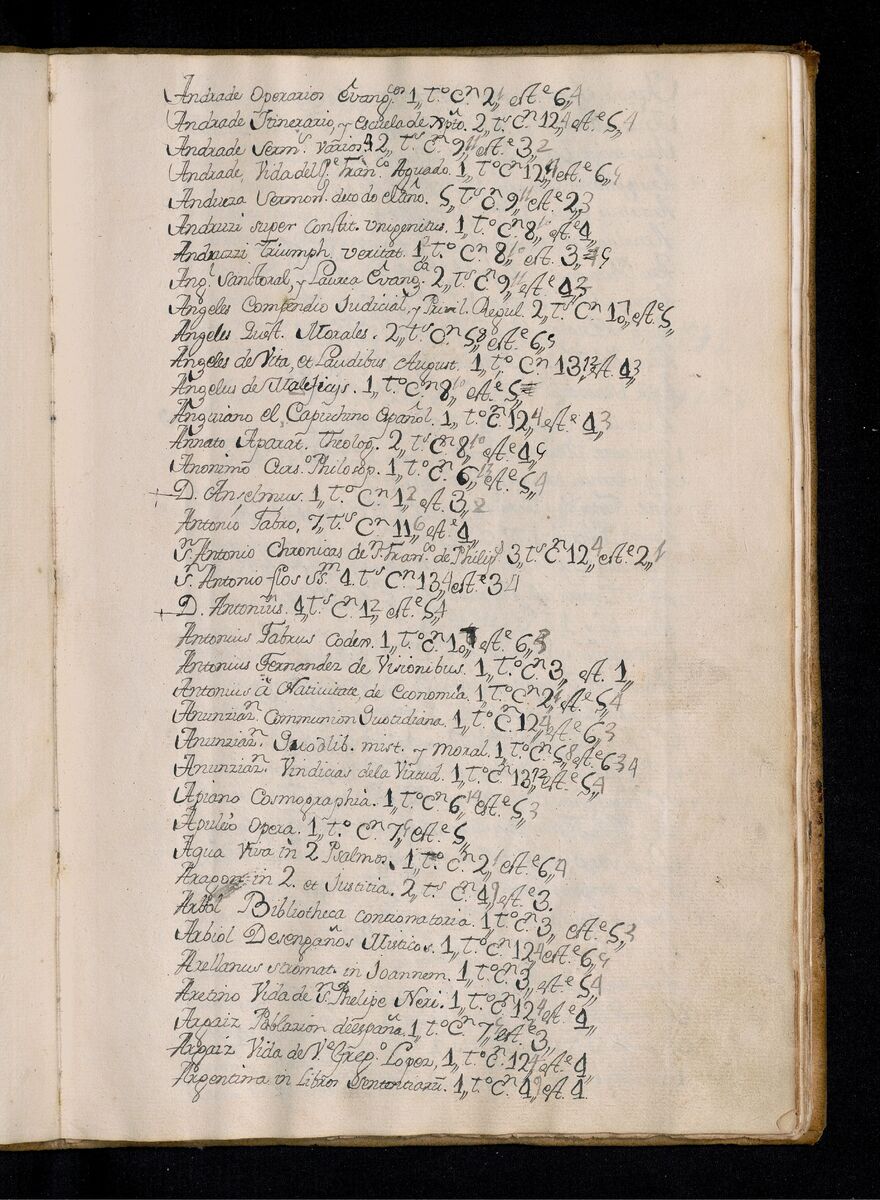 Andrade Operarios Evang.cos 1,, t.o C.n 2,, est.e 6,, 4
Andrade Itinerario, y Escuela de Xpto. 2,, t.s C.n 12, 4 est.e 5,, 4
Andrade Serm.s varios 2,, t.s C.n 9,, est.e 3,, 2
Andrade, Vida del P.e Fran.co Aguado. 1,, t.o C.n 12, est.e 6,,
Andueza Sermon. de todo el año. 5,, t.s C.n 9,, est.e 2,, 3
Andruzi super Constit. Unigenitus. 1,, t.o C.n 8,, est.e 4,,
Andruzzi Triumph. veritat. t.o C.n 8,, est. 3,,
Ang.l Santoral, y Laurea Evang.ca 2,, t.s C.n 9,, est.e 4,, 3
Angeles Compendio Judicial, y Privil. Regul. 2,, t.s C.n est.e 5,,
Angeles Quæst. Morales. 2,, t.s C.n 5,, 8 est.e 6,,
Angeles de Vita, et Laudibus August. 1,, t.o C.n 13, 12 est. 4,, 3
Angelus de Maleficijs. 1,, t.o C.n 8,, est.e 5,,
Anguiano el Capuchino Español. 1,, t.o C.n 12,, 4 est.e 4,, 3
Annato Aparat. Theolog. 2,, t.s C.n 8,, 10 est.e 4,,
Anonimo Curs.o Philosop. 1,, t.o C.n 6,, est.e 5,, 4
D. Anselmus. 1,, t.o C.n 1,, 2 est. 3,, 2
Antonio Fabro, 7,, t.s C.n 11,, 6 est.e 4,,
S.n Antonio Chronicas de N. Fran.co de Philip.s 3,, t.s C.n 12,, 4 est.e 2,, 1
S.n Antonio flos SS.m 4. t.s C.n 13, 4 est.e 3 4
D. Antoninus. 4,, t.s C.n 1,, 2 est.e 5,, 4
Antonius Fabrus Coden. 1,, t.o C.n est.e 6,, 3
Antonius Fernandez de Visionibus. 1,, t.o C.n 3,, est. 1,,
Antonius à Nativitate, de Economia. 1,, t.o C.n 2,, est.e 5,, 4
Anunziaz.n Communion Quotidiana. 1,, t.o C.n 12,, 4 est.e 6,, 3
Anunziaz.n Quodlib. mist. y moral. 1,, t.o C.n 5,, 8 est.e 6 3 4
Anunziaz.n Vindicias de la Virtud. 1,, t.o C.n 13, 12 est.e 5,, 4
Apiano Cosmographia. 1,, t.o C.n 6,, 14 est.e 5,, 3
Apuleio Opera. 1,, t.o C.n 7,, est.e 5,,
Aqua Viva in 2 Psalmos. 1,, t.o C.n 2,, 1 est.e 6,, 4
Aragon in 2. et Justitia. 2,, t.s C.n 4,, est.e 3.
Arbol Bibliotheca concionatoria. 1,, t.o C.n 3,, est.e 5,, 3
Arbiol Desengaños Misticos. 1,, t.o C.n 12, 4 est.e 6,,
Arellanus stromat. in Joannem. 1,, t.o C.n 3,, est.e 5,, 4
Aretino Vida de S.n Phelipe Neri. 1,, t.o C.n 12, 4 est.e 4,,
Argaiz Poblazion de españa. 1,, t.o C.n 7,, est.e 3,,
Argaiz Vida de V.e Greg.o Lopez, 1,, t.o C.n 12, 4 est.e 4,,
Argentina in Libros Sententiarũ. 1,, t.o C.n 4,, est. 4.